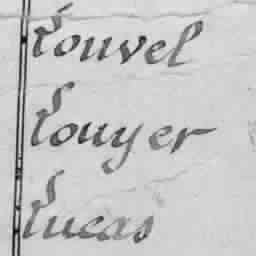 Louvel
Louyer
Lucas